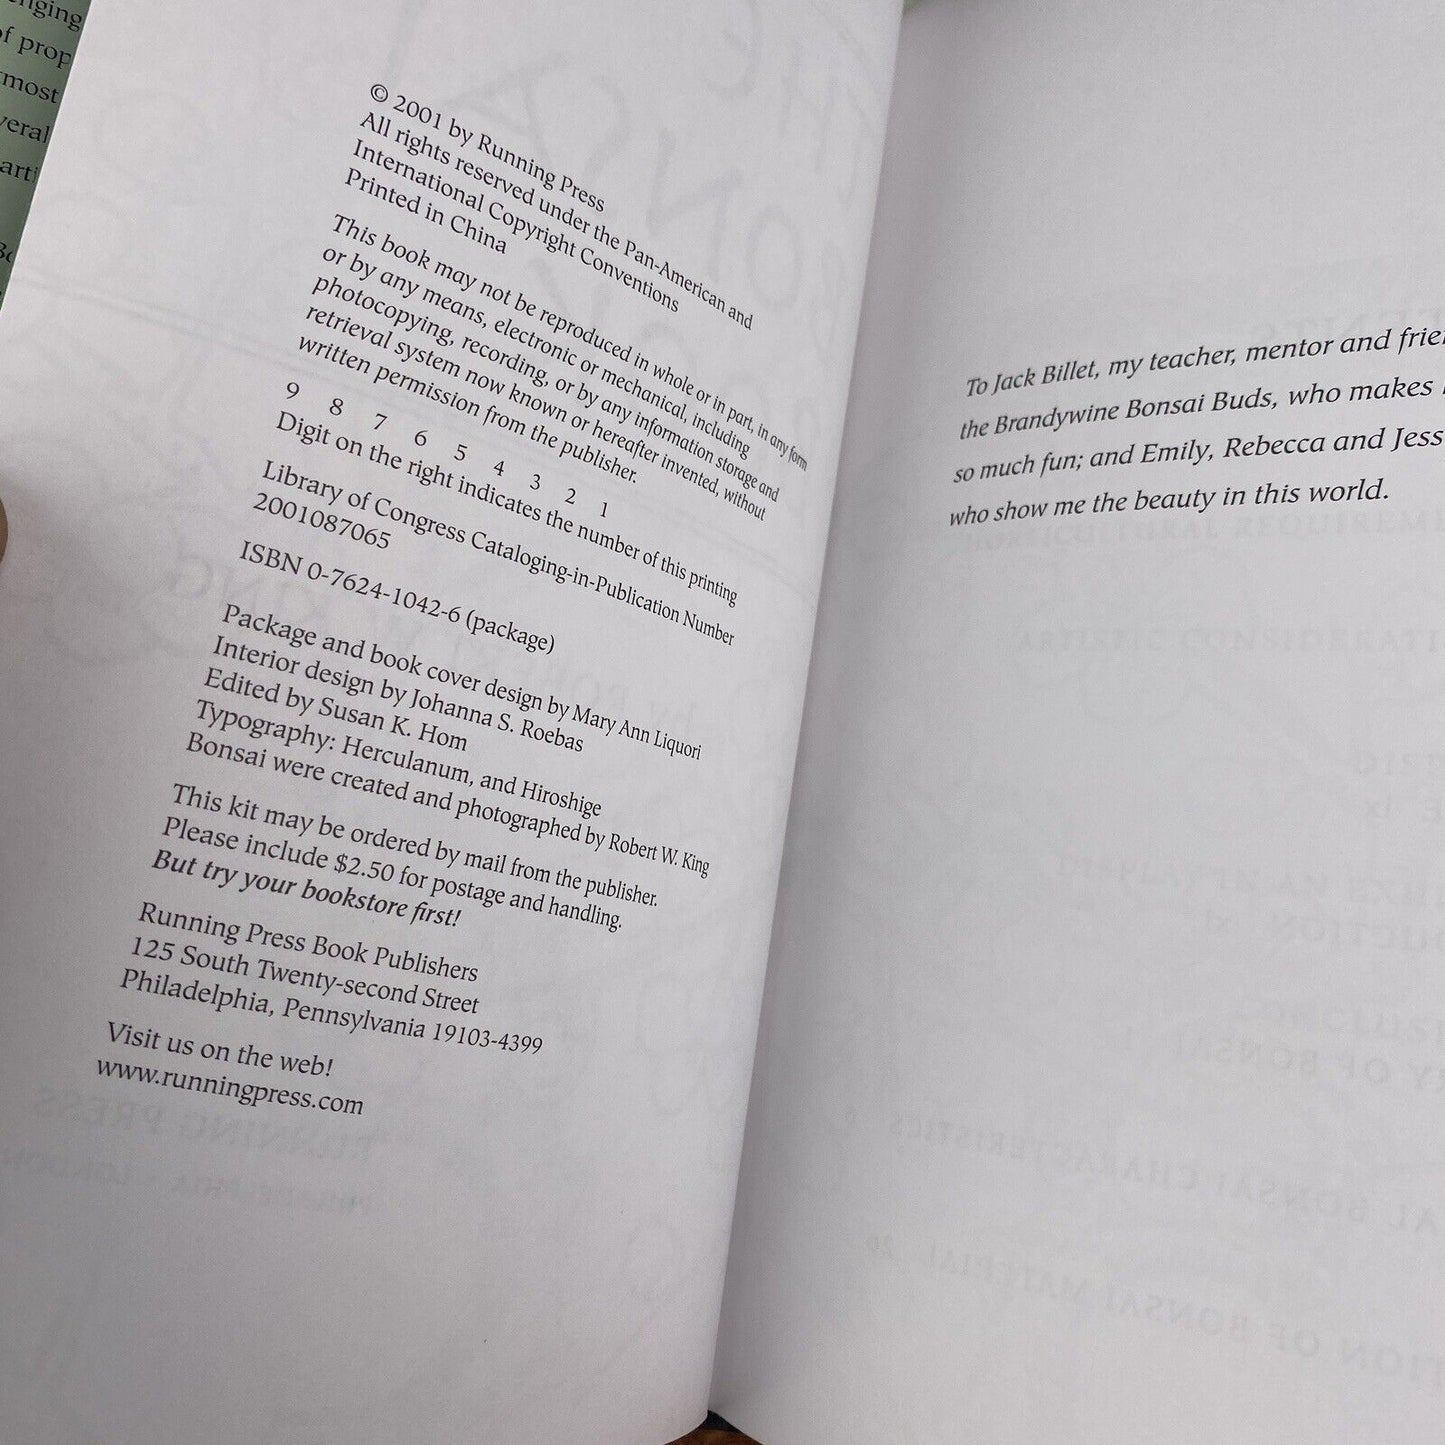 nging
of prop
most
veral
arti
© 2001 by Running Press
All rights reserved under the Pan-American and
International Copyright Conventions
Printed in China
This book may not be reproduced in whole or in part, in any form
or by any means, electronic or mechanical, including
photocopying, recording, or by any information storage and
retrieval system now known or hereafter invented, without
written permission from the publisher.
9 8 7 6 5 4 3 2 1
Digit on the right indicates the number of this printing
Library of Congress Cataloging-in-Publication Number
2001087065
ISBN 0-7624-1042-6 (package)
Package and book cover design by Mary Ann Liquori
Interior design by Johanna S. Roebas
Edited by Susan K. Hom
Typography: Herculanum, and Hiroshige
Bonsai were created and photographed by Robert W. King
This kit may be ordered by mail from the publisher.
Please include $2.50 for postage and handling.
But try your bookstore first!
Running Press Book Publishers
125 South Twenty-second Street
Philadelphia, Pennsylvania 19103-4399
Visit us on the web!
www.runningpress.com
To Jack Billet, my teacher, mentor and frien
the Brandywine Bonsai Buds, who makes
so much fun; and Emily, Rebecca and Jess
who show me the beauty in this world.